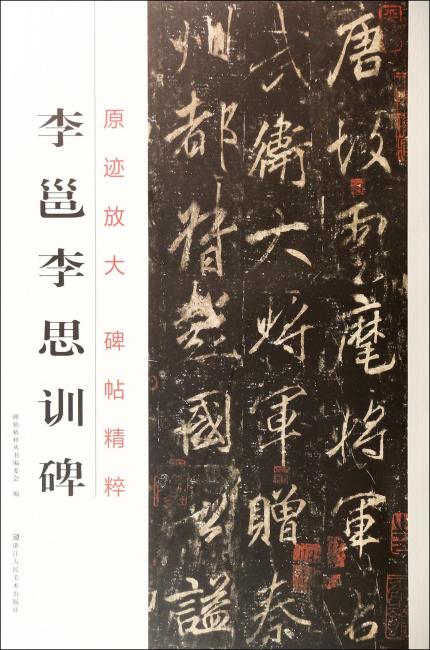 唐故雲麾將軍右
武衛大將軍贈秦
州都督彭國公謚
原迹放大 碑帖精粹
李邕李思训碑
碑帖精粹丛书编委会 编
浙江人民美术出版社